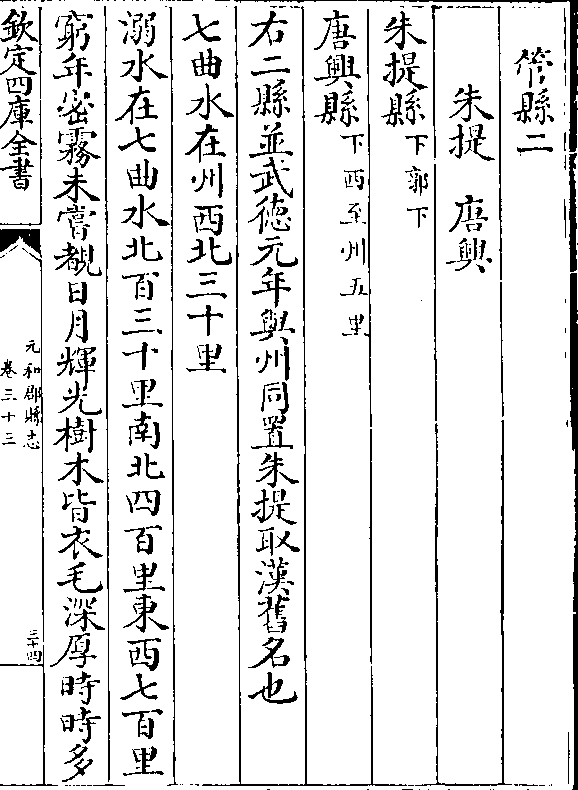 管縣二
朱提　唐興
朱提縣下郭下
唐興縣下西至州五里
右二縣並武德元年與州同置朱提取漢舊名也
七曲水在州西北三十里
溺水在七曲水北百三十里南北四百里東西七百里
窮年密霧未嘗覩日月輝光樹木皆衣毛深厚時時多
欽定四庫全書
元和郡縣志
卷三十三
三十四